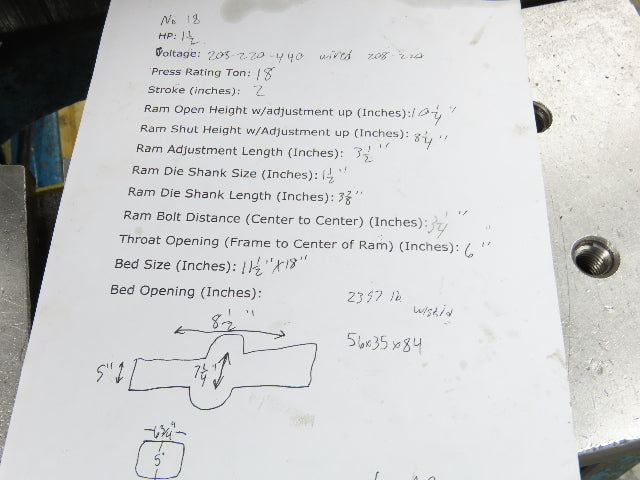 No 18
HP: 1 1/2
Voltage: 208-220-440 wired 208-220
Press Rating Ton: 18
Stroke (inches): 2
Ram Open Height w/adjustment up (Inches): 10 1/4"
Ram Shut Height w/Adjustment up (Inches): 8 1/4"
Ram Adjustment Length (Inches): 3 1/2"
Ram Die Shank Size (Inches): 1 1/2"
Ram Die Shank Length (Inches):
Ram Bolt Distance (Center to Center) (Inches): 3 1/4"
Throat Opening (Frame to Center of Ram) (Inches): 6"
Bed Size (Inches): 11 1/2" X 18"
Bed Opening (Inches):
2397 lb
w/skid
8 1/2"
56x35x84
5"
7 1/4"
6 3/4"
5"